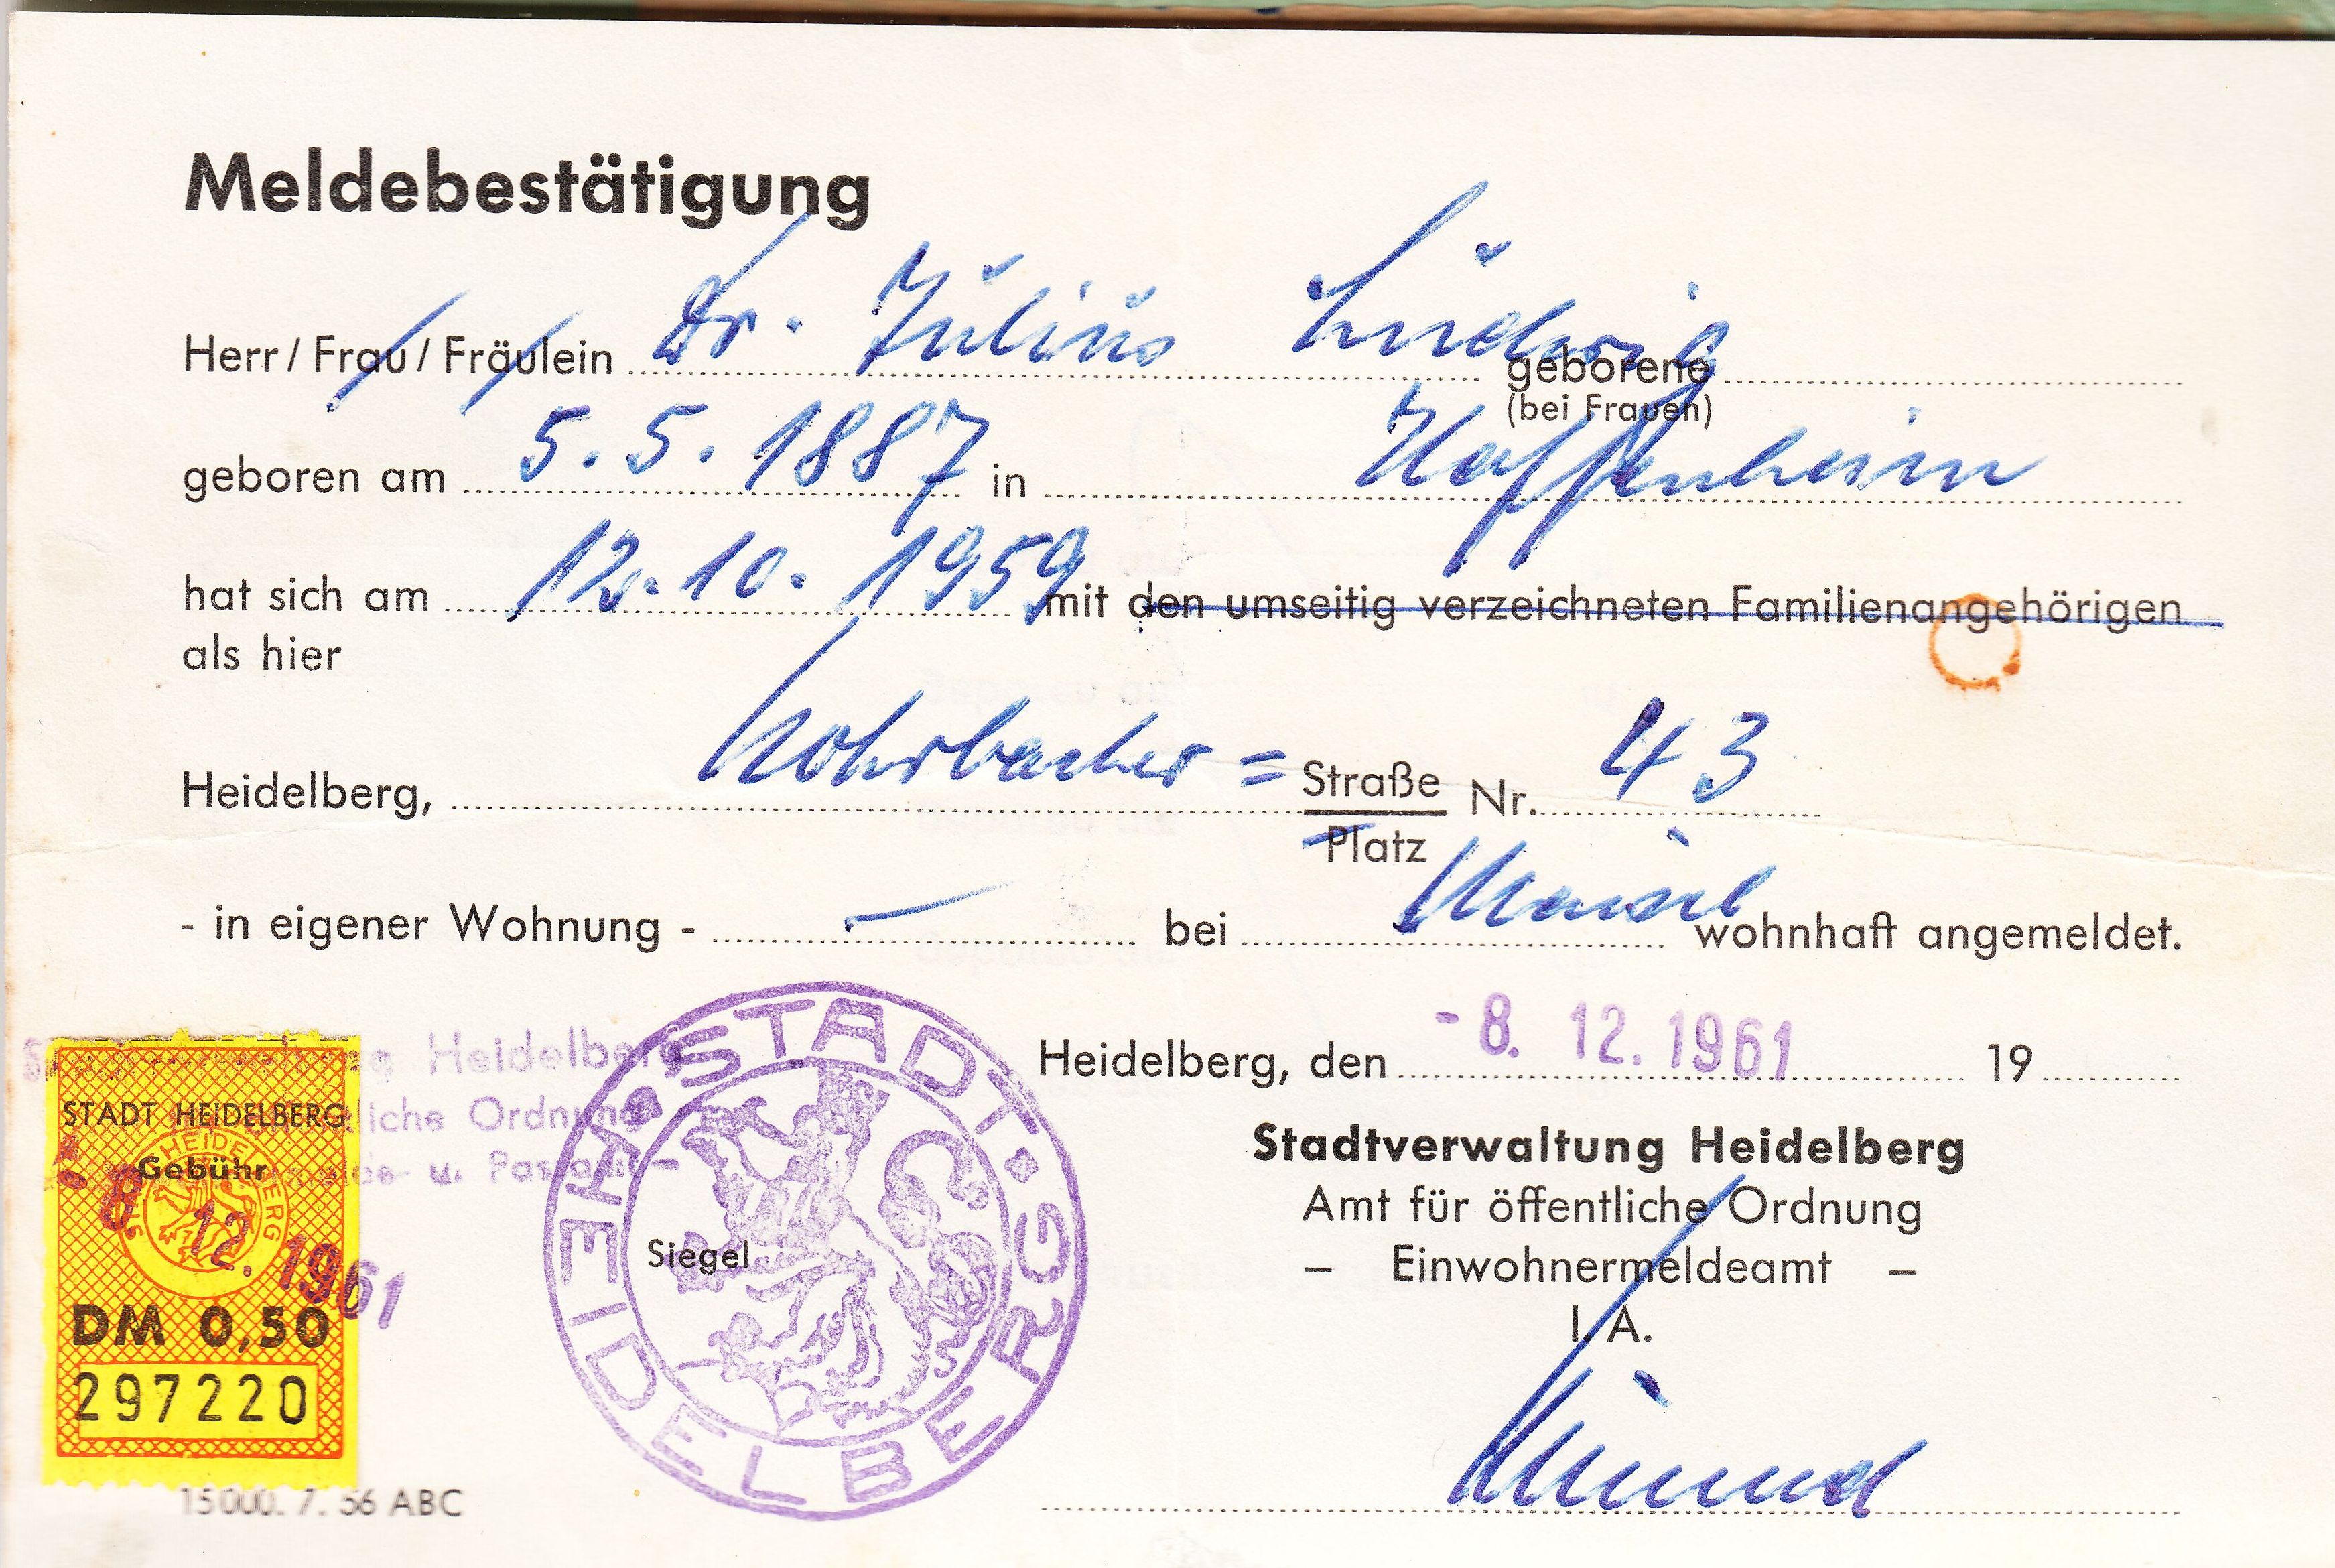 Meldebestätigung
Herr / Frau / Fräulein Dr. Julius Ludwig geborene
(bei Frauen)
geboren am 5.5.1887 in Heffenheim
hat sich am 12.10.1959 mit den umseitig verzeichneten Familienangehörigen
als hier
Heidelberg, Rohrbacher = Straße Nr. 43
Platz
- in eigener Wohnung - — bei wohnhaft angemeldet.
Heidelberg, den - 8. 12. 1961 19
Stadtverwaltung Heidelberg
Amt für öffentliche Ordnung
– Einwohnermeldeamt –
I. A.
Heidelberg
liche Ordnung
u. Passamt –
STADT HEIDELBERG
Gebühr
- 8. 12. 1961
DM 0,50
297220
STADT · HEIDELBERG
Siegel
STADT · HEIDELBERG
15000. 7. 56 ABC